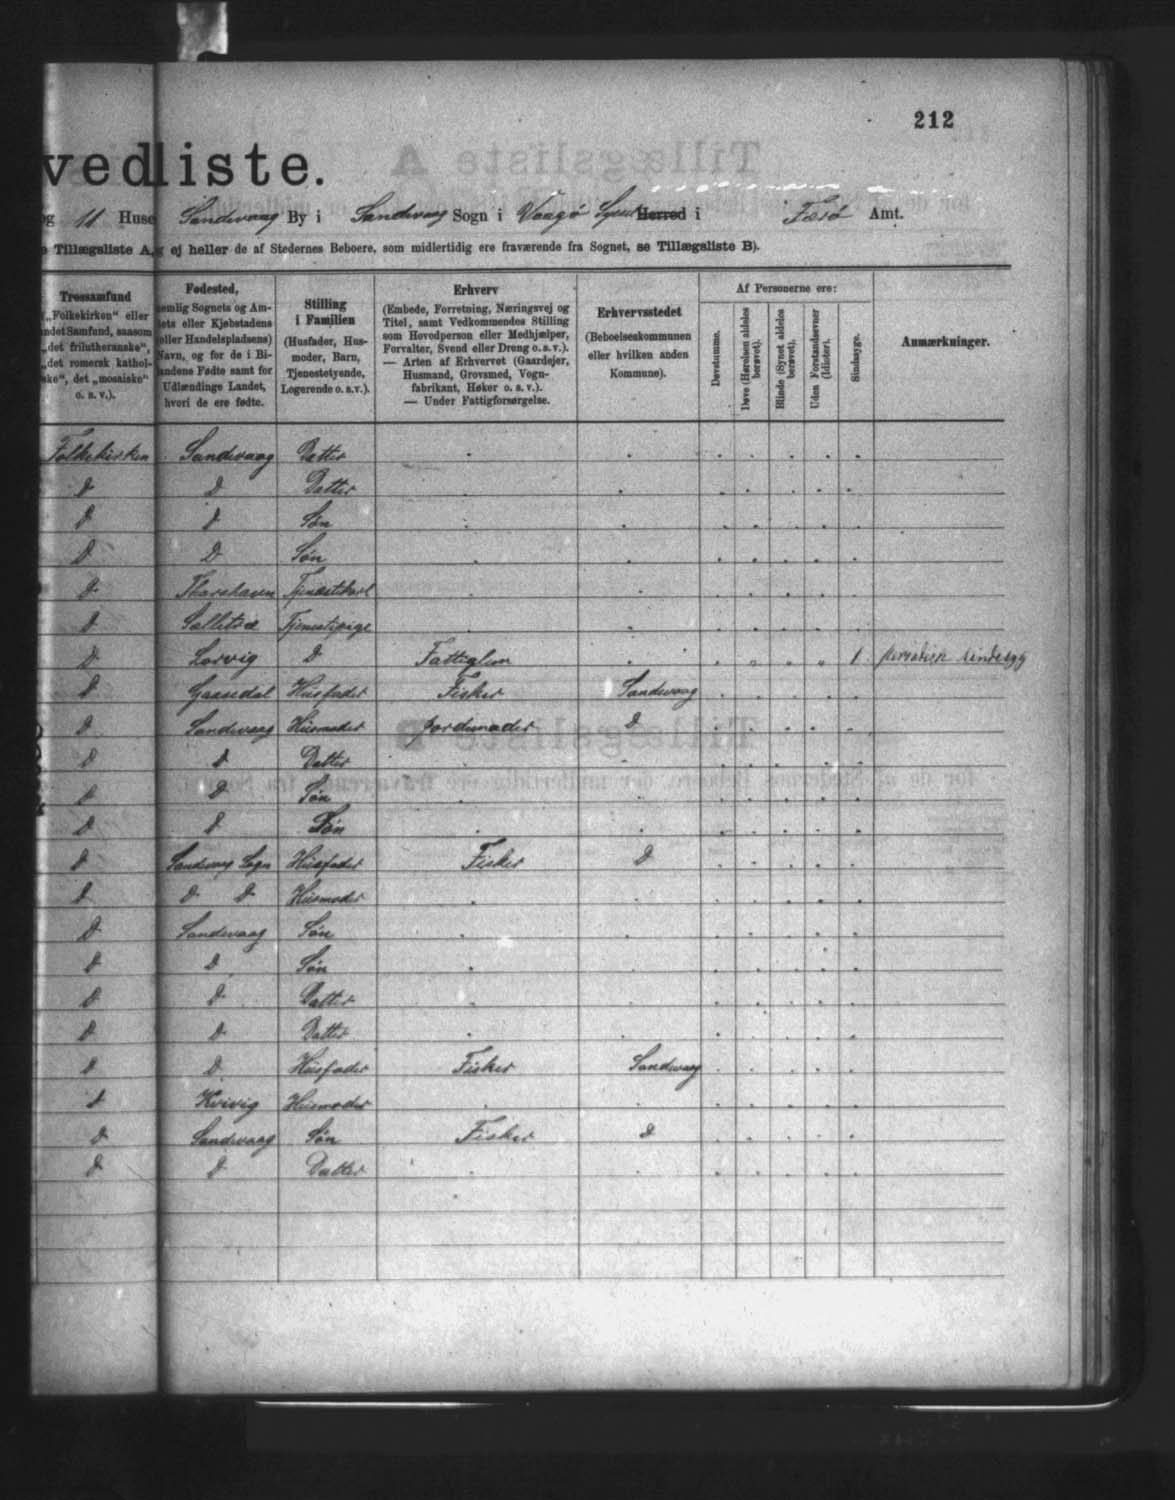 212
vedliste.
og 11 Huse Sandevaag By i Sandevaag Sogn i Vaagø Syssel Herred i Færø Amt.
Tillægsliste A, ej heller de af Stedernes Beboere, som midlertidig ere fraværende fra Sognet, se Tillægsliste B).
Trossamfund
(„Folkekirken“ eller
andet Samfund, saasom
„det frilutheranske“,
„det romersk kathol-
ske“, det „mosaiske“
o. s. v.).
Fødested,
nemlig Sognets og Am-
tets eller Kjøbstadens
(eller Handelspladsens)
Navn, og for de i Bi-
landene Fødte samt for
Udlændinge Landet,
hvori de ere fødte.
Stilling
i Familien
(Husfader, Hus-
moder, Barn,
Tjenestetyende,
Logerende o. s. v.).
Erhverv
(Embede, Forretning, Næringsvej og
Titel, samt Vedkommendes Stilling
som Hovedperson eller Medhjælper,
Forvalter, Svend eller Dreng o. s. v.).
— Arten af Erhvervet (Gaardejer,
Husmand, Grovsmed, Vogn-
fabrikant, Høker o. s. v.).
— Under Fattigforsørgelse.
Erhvervsstedet
(Beboelseskommunen
eller hvilken anden
Kommune).
Af Personerne ere:
Døvstumme.
Døve (Hørelsen aldeles
berøvet).
Blinde (Synet aldeles
berøvet).
Uden Forstandsevner
(Idioter).
Sindssyge.
Anmærkninger.
Folkekirken Sandevaag Datter
D D Datter
D D Søn
D D Søn
D Thorshavn Tjenestekarl
D Tjenestepige
D Sorvig D Fattiglem 1 periodisk sindssyg
D Gaasedal Husfader Fisker Sandevaag
D Sandevaag Husmoder Jordemoder D
D D Datter
D D Søn
D D Søn
D Sandevaag Sogn Husfader Fisker D
D D D Husmoder
D Sandevaag Søn
D D Søn
D D Datter
D D Datter
D D Husfader Fisker Sandevaag
D Kvivig Husmoder
D Sandevaag Søn Fisker D
D D Datter